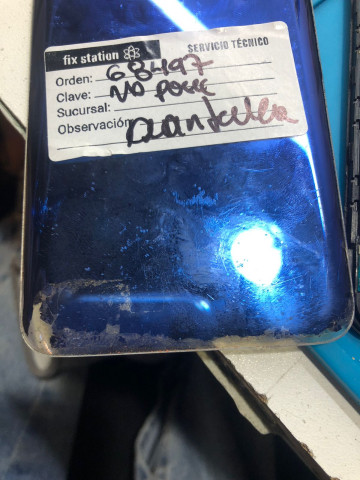 fix station SERVICIO TÉCNICO
Orden: 68497
Clave: NO POSEE
Sucursal:
Observación